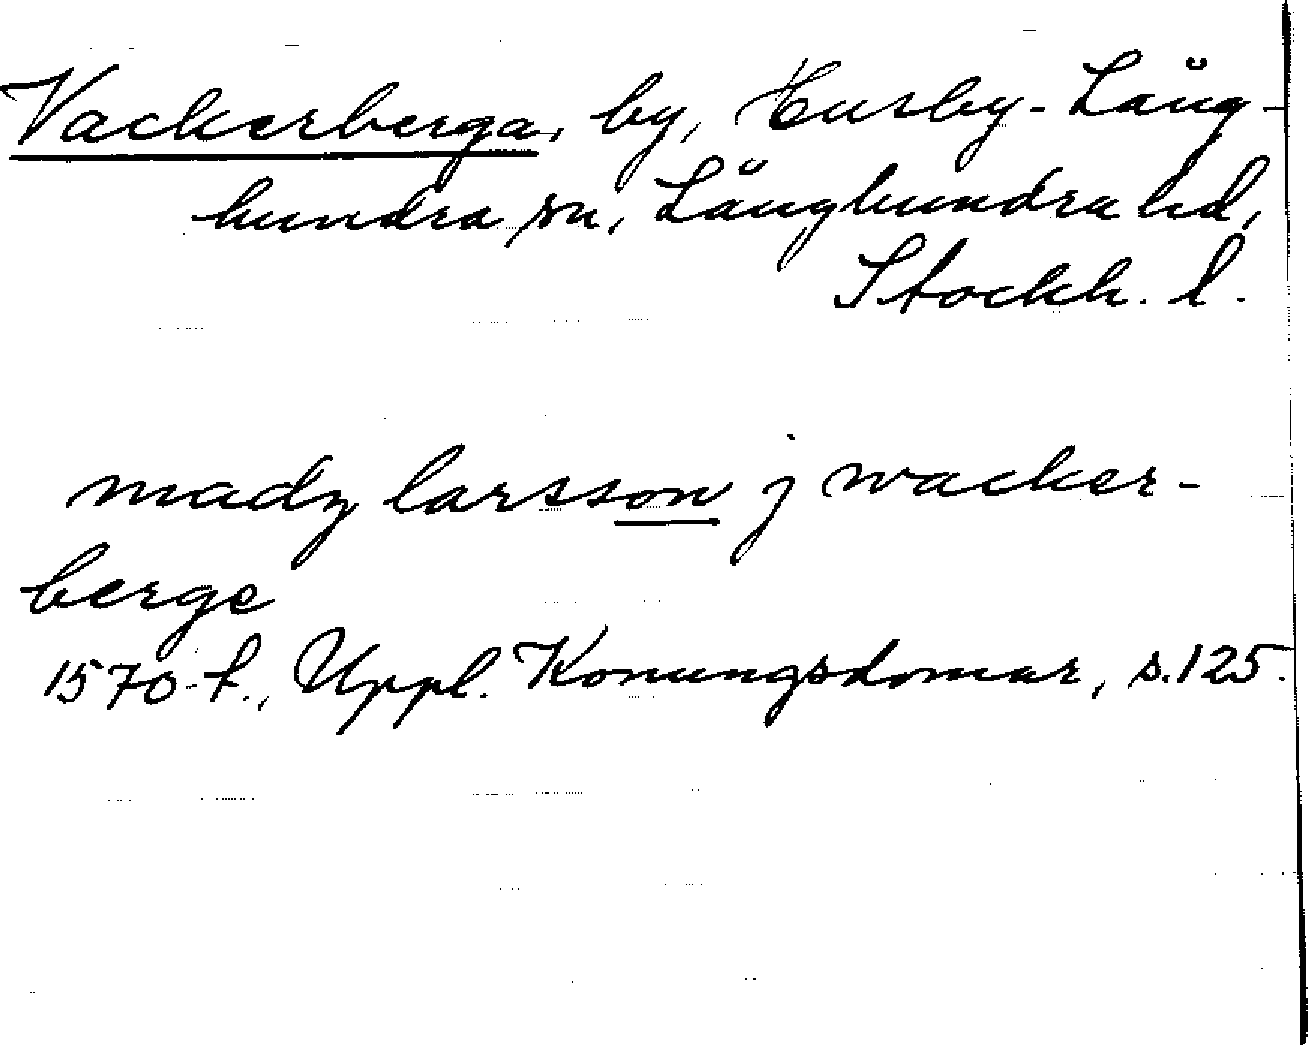 Vackerberga, by, Husby-Lång-
hundra sn, Långhundra hd,
Stockh. l.
madz larsson j wacker-
berge
1570-t., Uppl. Konungsdomar, s.125.